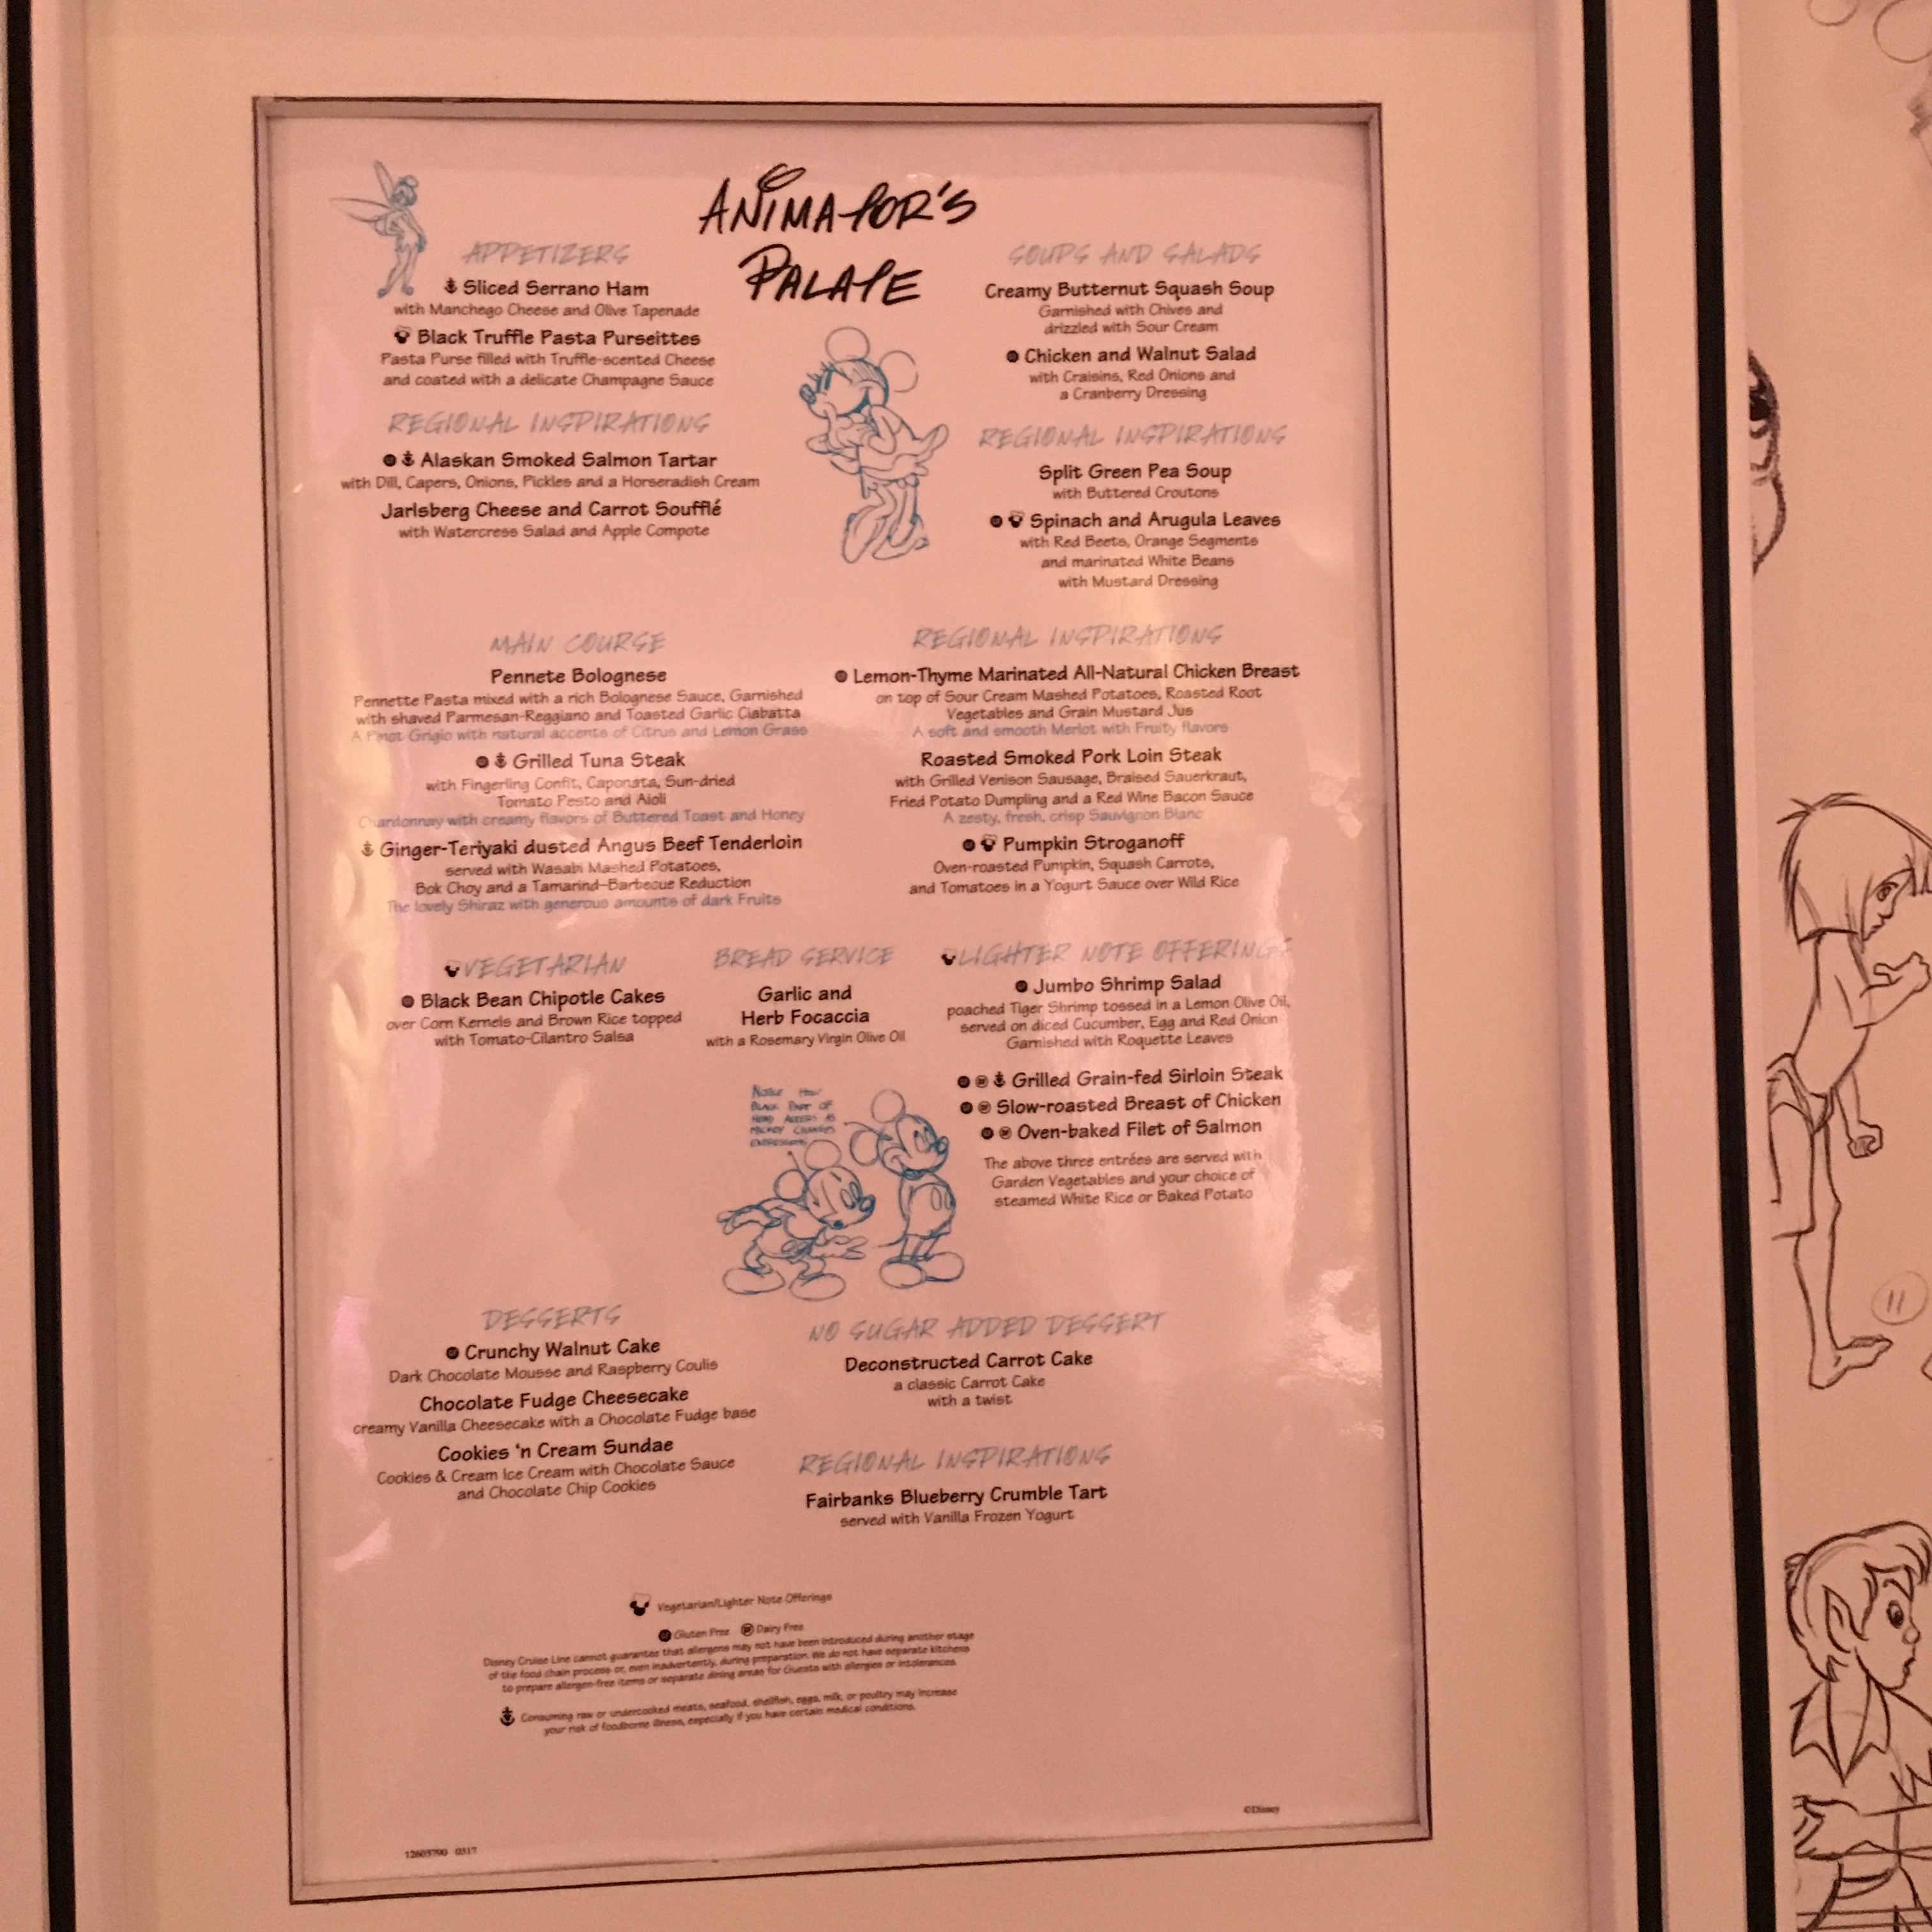 ANIMATOR'S
PALATE
APPETIZERS
Sliced Serrano Ham
with Manchego Cheese and Olive Tapenade
Black Truffle Pasta Purseittes
Pasta Purse filled with Truffle-scented Cheese
and coated with a delicate Champagne Sauce
REGIONAL INSPIRATIONS
Alaskan Smoked Salmon Tartar
with Dill, Capers, Onions, Pickles and a Horseradish Cream
Jarlsberg Cheese and Carrot Soufflé
with Watercress Salad and Apple Compote
SOUPS AND SALADS
Creamy Butternut Squash Soup
Garnished with Chives and
drizzled with Sour Cream
Chicken and Walnut Salad
with Craisins, Red Onions and
a Cranberry Dressing
REGIONAL INSPIRATIONS
Split Green Pea Soup
with Buttered Croutons
Spinach and Arugula Leaves
with Red Beets, Orange Segments
and marinated White Beans
with Mustard Dressing
MAIN COURSE
Pennete Bolognese
Pennette Pasta mixed with a rich Bolognese Sauce, Garnished
with shaved Parmesan-Reggiano and Toasted Garlic Ciabatta
A Pinot Grigio with natural accents of Citrus and Lemon Grass
Grilled Tuna Steak
with Fingerling Confit, Caponata, Sun-dried
Tomato Pesto and Aioli
Chardonnay with creamy flavors of Buttered Toast and Honey
Ginger-Teriyaki dusted Angus Beef Tenderloin
served with Wasabi Mashed Potatoes,
Bok Choy and a Tamarind-Barbecue Reduction
The lovely Shiraz with generous amounts of dark Fruits
REGIONAL INSPIRATIONS
Lemon-Thyme Marinated All-Natural Chicken Breast
on top of Sour Cream Mashed Potatoes, Roasted Root
Vegetables and Grain Mustard Jus
A soft and smooth Merlot with Fruity flavors
Roasted Smoked Pork Loin Steak
with Grilled Venison Sausage, Braised Sauerkraut,
Fried Potato Dumpling and a Red Wine Bacon Sauce
A zesty, fresh, crisp Sauvignon Blanc
Pumpkin Stroganoff
Oven-roasted Pumpkin, Squash Carrots,
and Tomatoes in a Yogurt Sauce over Wild Rice
VEGETARIAN
Black Bean Chipotle Cakes
over Corn Kernels and Brown Rice topped
with Tomato-Cilantro Salsa
BREAD SERVICE
Garlic and
Herb Focaccia
with a Rosemary Virgin Olive Oil
LIGHTER NOTE OFFERINGS
Jumbo Shrimp Salad
poached Tiger Shrimp tossed in a Lemon Olive Oil,
served on diced Cucumber, Egg and Red Onion
Garnished with Roquette Leaves
Grilled Grain-fed Sirloin Steak
Slow-roasted Breast of Chicken
Oven-baked Filet of Salmon
The above three entrées are served with
Garden Vegetables and your choice of
steamed White Rice or Baked Potato
NOTICE HOW
BLACK PART OF
HEAD
MICKEY CHANGES
EXPRESSIONS
DESSERTS
Crunchy Walnut Cake
Dark Chocolate Mousse and Raspberry Coulis
Chocolate Fudge Cheesecake
creamy Vanilla Cheesecake with a Chocolate Fudge base
Cookies 'n Cream Sundae
Cookies & Cream Ice Cream with Chocolate Sauce
and Chocolate Chip Cookies
NO SUGAR ADDED DESSERT
Deconstructed Carrot Cake
a classic Carrot Cake
with a twist
REGIONAL INSPIRATIONS
Fairbanks Blueberry Crumble Tart
served with Vanilla Frozen Yogurt
Vegetarian/Lighter Note Offerings
Gluten Free Dairy Free
Disney Cruise Line cannot guarantee that allergens may not have been introduced during another stage
of the food chain process or, even inadvertently, during preparation. We do not have separate kitchens
to prepare allergen-free items or separate dining areas for Guests with allergies or intolerances.
Consuming raw or undercooked meats, seafood, shellfish, eggs, milk, or poultry may increase
your risk of foodborne illness, especially if you have certain medical conditions.
©Disney
12605790 0317
11